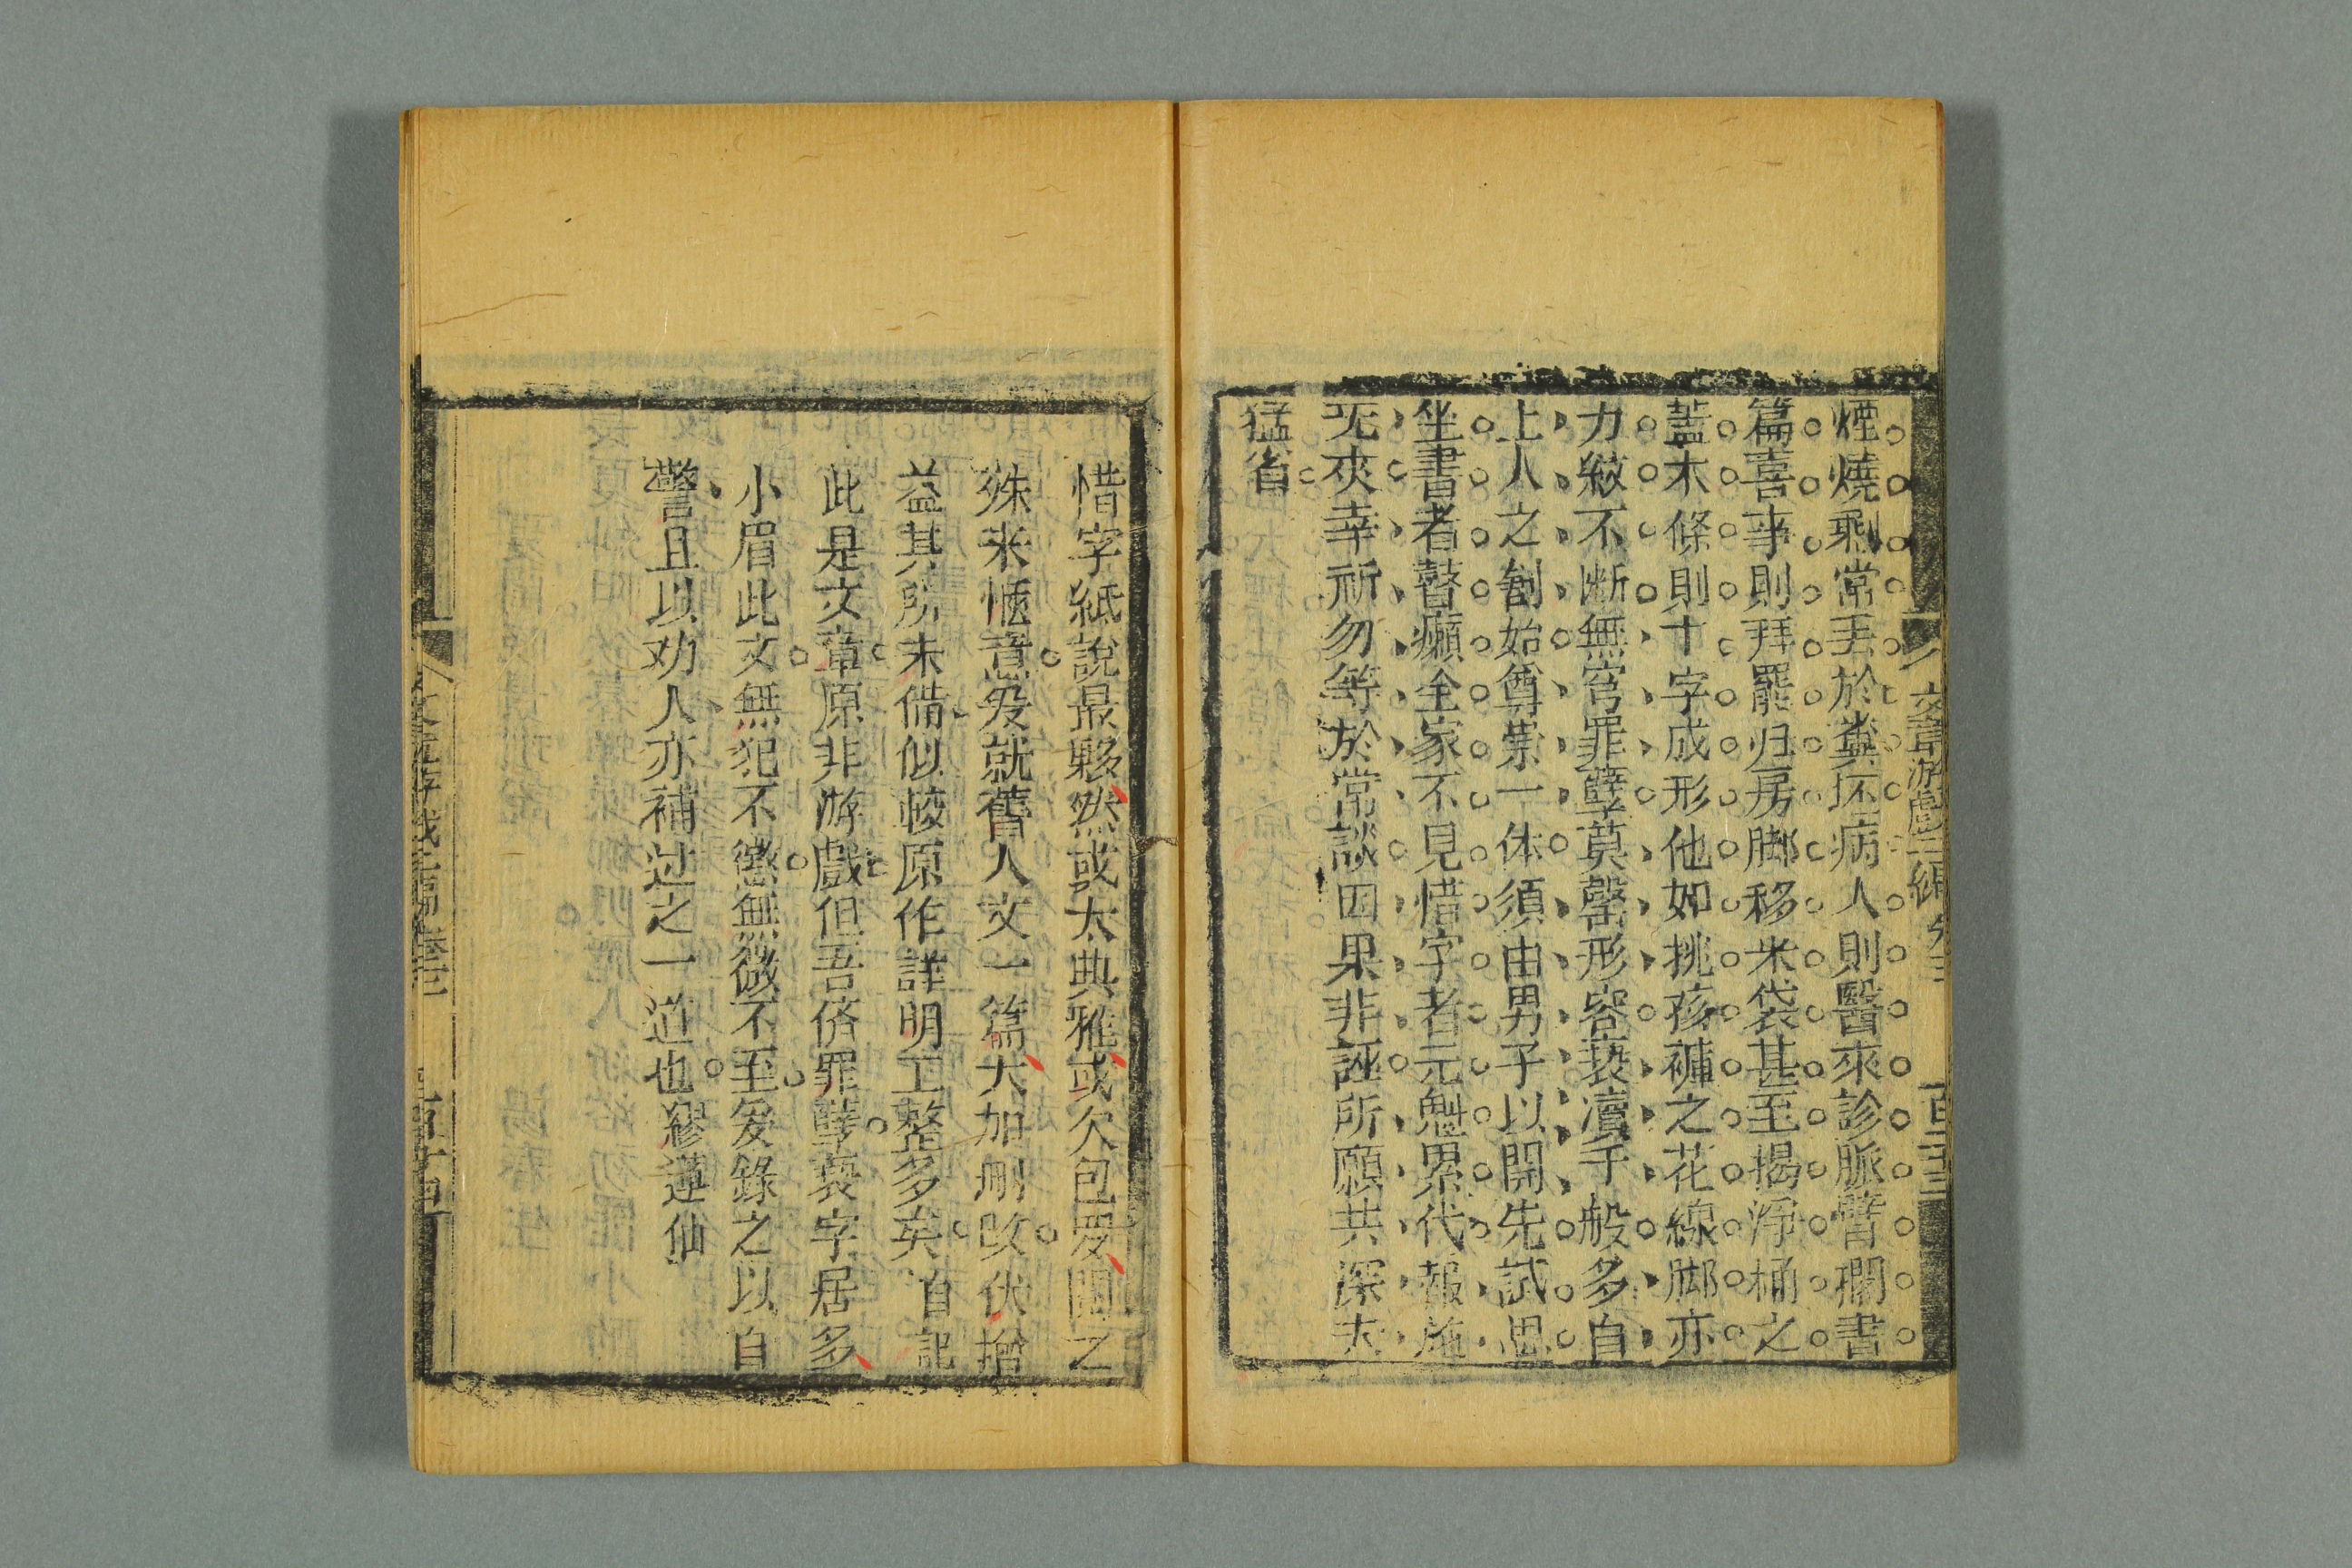 文章游戲三編 卷三 百三三
煙燒剩常丟於糞坯病人則醫來診脈臂擱書
篇喜事則拜罷归房脚移米袋甚至揭淨桶之
蓋木條則十字成形他如挑孩褲之花線脚亦
力絞不斷無窮罪孽莫罄形容褻瀆手般多自
上人之創始尊崇一体須由男子以開先試思
坐書者瞽癩全家不見惜字者元魁累代報施
无夾幸祈勿等於常談因果非誣所願共深大
猛省
惜字紙說最夥然或太典雅或欠包罗閱之
殊未愜意爰就舊人文一篇大加刪改伏搶
益其所未備似較原作詳明工整多矣 自記
此是文章原非游戲但吾儕罪孽褻字居多
小眉此文無犯不懲無微不至爰錄之以自
警且以劝人亦補过之一道也繆蓮仙